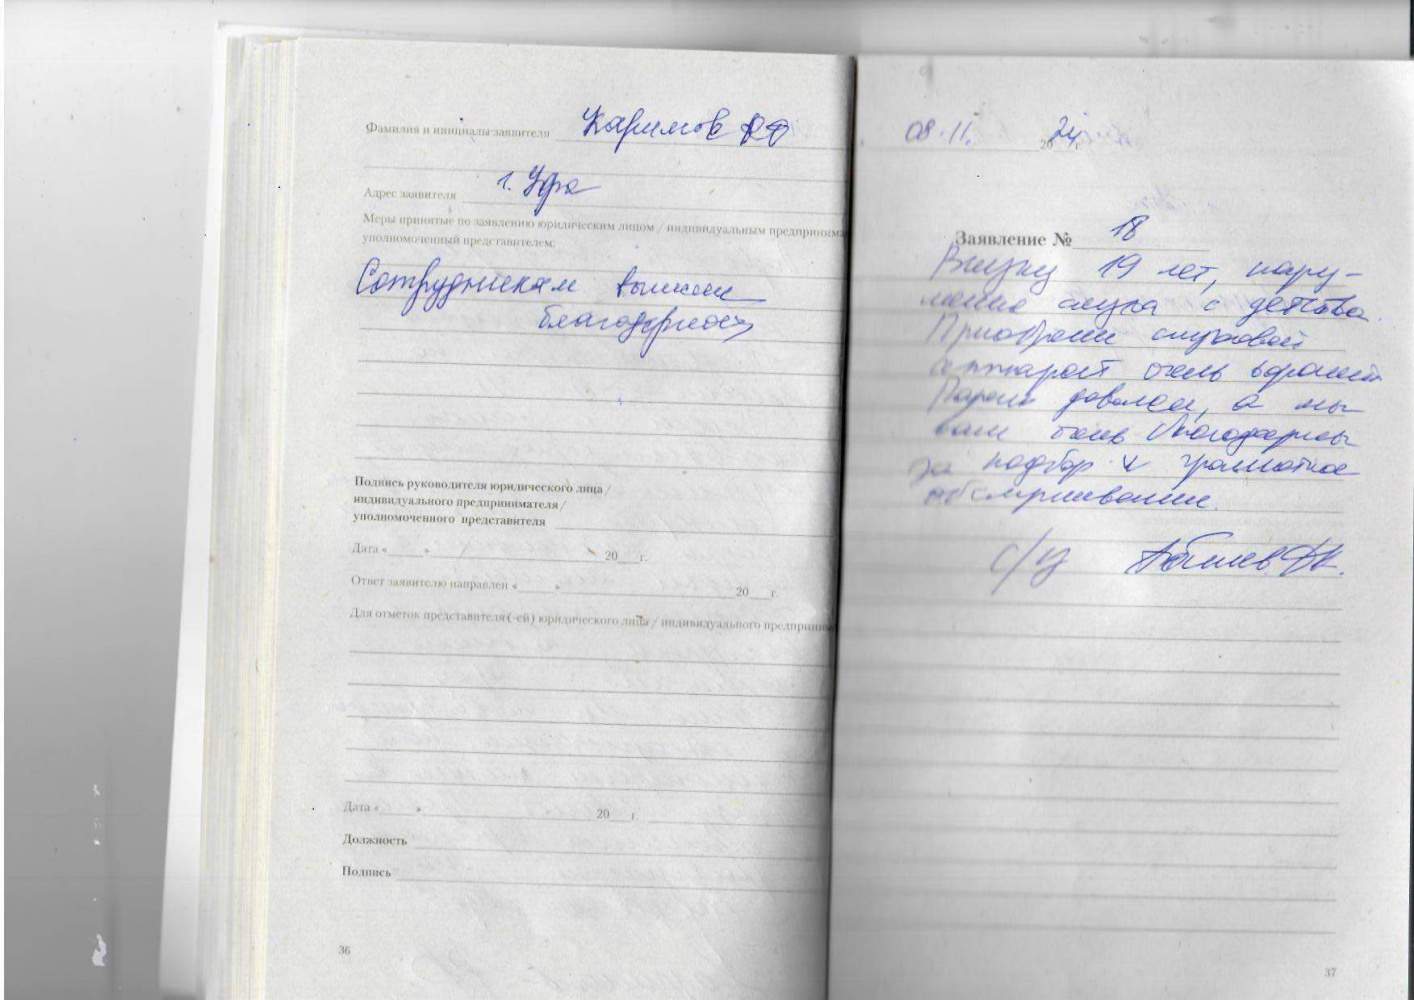 Фамилия и инициалы заявителя Каримов РФ
Адрес заявителя г. Уфа
Меры принятые по заявлению юридическим лицом / индивидуальным предпринима
уполномоченный представителем:
Сотрудникам
благодарность
Подпись руководителя юридического лица /
индивидуального предпринимателя /
уполномоченного представителя
Дата «____» 20__г.
Ответ заявителю направлен «____» 20__г.
Для отметок представителя(-ей) юридического лица / индивидуального предприни
Дата «____» 20__г.
Должность
Подпись
36
08.11. 2024г.
Заявление № 18
Внуку 19 лет, нару-
шение слуха с детства.
Приобрели слуховой
аппарат очень
Парень доволен, а мы
вам очень благодарны
за подбор и грамотное
обслуживание.
с/у
37